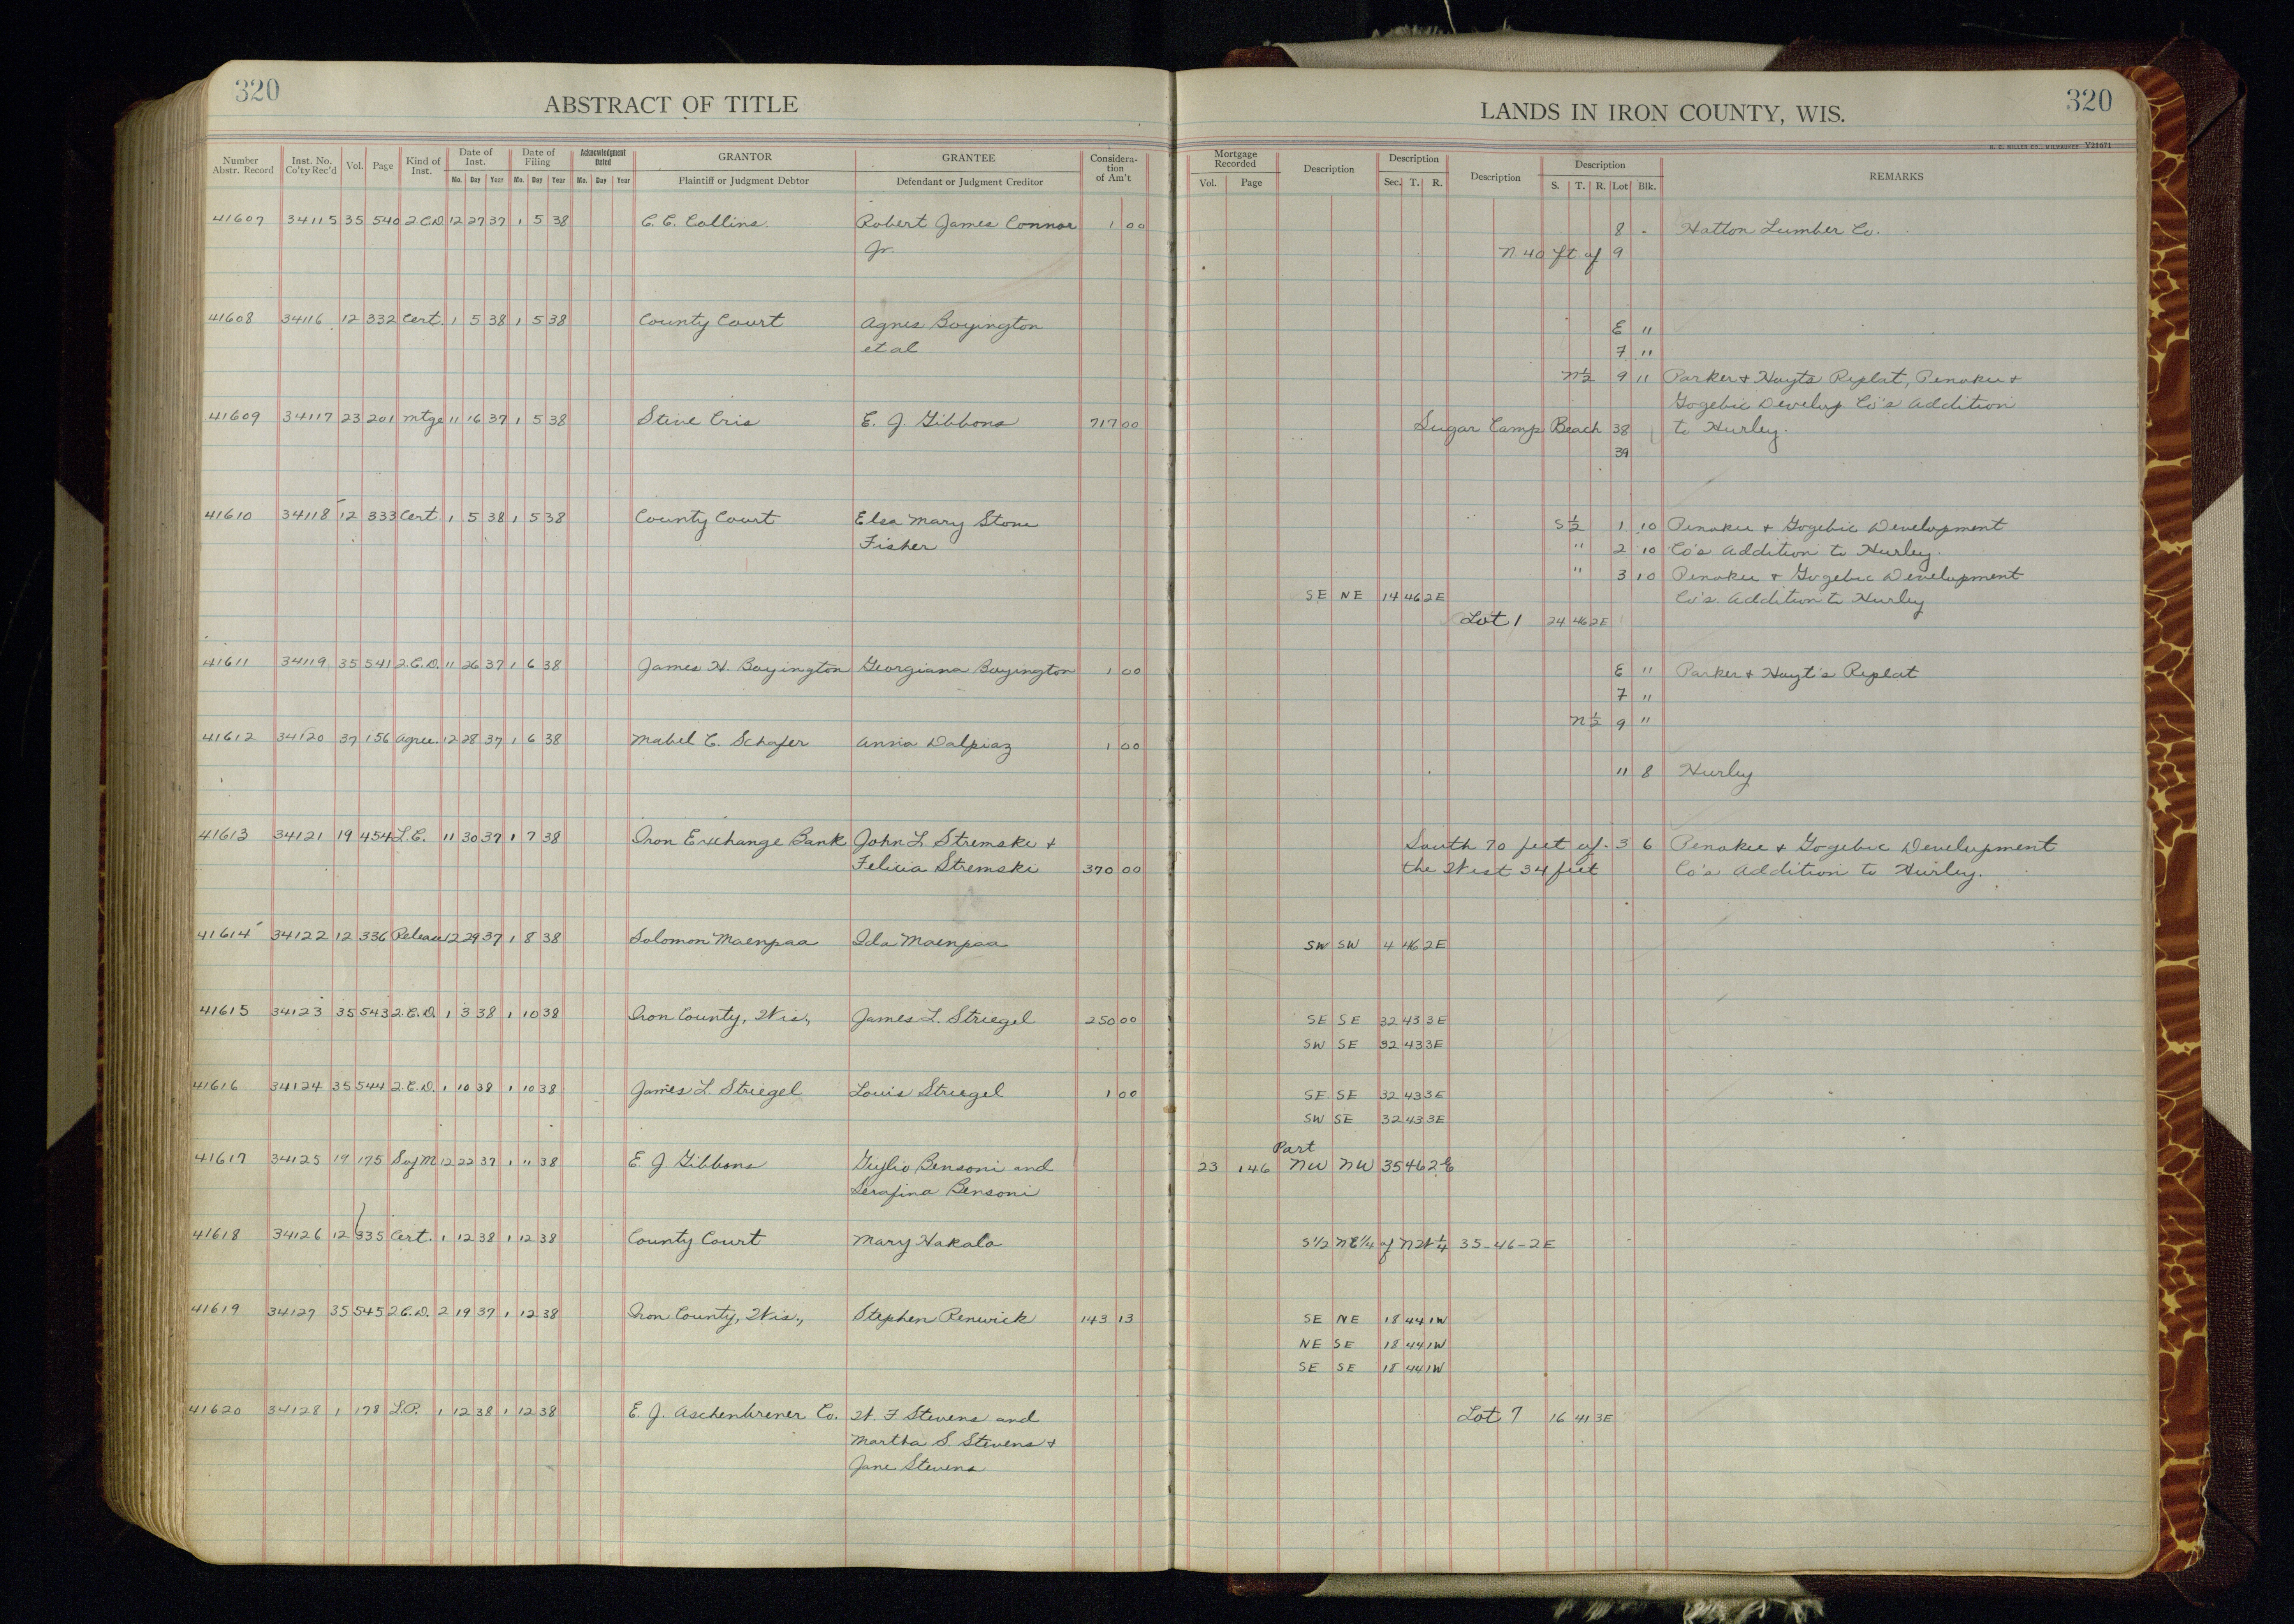 320
ABSTRACT OF TITLE
LANDS IN IRON COUNTY, WIS.
320
H. C. MILLER CO., MILWAUKEE V21671
Number Abstr. Record Inst. No. Co'ty Rec'd Vol. Page Kind of Inst. Date of Inst. Mo. Day Year Date of Filing Mo. Day Year Acknowledgment Dated Mo. Day Year GRANTOR Plaintiff or Judgment Debtor GRANTEE Defendant or Judgment Creditor Considera-tion of Am't
Mortgage Recorded Vol. Page Description Description Sec. T. R. Description Description S. T. R. Lot Blk. REMARKS
41607 34115 35 540 2.C.D. 12 27 37 1 5 38 C. C. Collins. Robert James Connor 1 00 8 - Hatton Lumber Co.
Jr. N 40 ft. of 9
41608 34116 12 332 Cert. 1 5 38 1 5 38 County Court Agnes Boyington E "
et al 7 "
N½ 9 11 Parker & Hoyts Replat, Penokee &
Gogebic Develop. Co's Addition
41609 34117 23 201 Mtge 11 16 37 1 5 38 Steve Cris E. J. Gibbons 717 00 Sugar Camp Beach 38 to Hurley.
39
41610 34118 12 333 Cert. 1 5 38 1 5 38 County Court Elsa Mary Stone S½ 1 10 Penokee & Gogebic Development
Fisher " 2 10 Co's Addition to Hurley.
" 3 10 Penokee & Gogebic Development
SE NE 14 46 2E Co's. Addition to Hurley
Lot 1 24 46 2E
41611 34119 35 541 2.C.D. 11 26 37 1 6 38 James H. Boyington Georgiana Boyington 1 00 E " Parker & Hoyt's Replat
7 "
N½ 9 "
41612 34120 37 156 Agree. 12 28 37 1 6 38 Mabel C. Schafer Anna Dalpiaz 1 00
11 8 Hurley
41613 34121 19 454 L.C. 11 30 37 1 7 38 Iron Exchange Bank John L. Stremski & South 70 feet of 3 6 Penokee & Gogebic Development
Felicia Stremski 370 00 the West 34 feet Co's Addition to Hurley.
41614 34122 12 336 Release 12 29 37 1 8 38 Solomon Maenpaa Ida Maenpaa SW SW 4 46 2E
41615 34123 35 543 2.C.D. 1 3 38 1 10 38 Iron County, Wis., James L. Striegel 250 00 SE SE 32 43 3E
SW SE 32 43 3E
41616 34124 35 544 2.C.D. 1 10 38 1 10 38 James L. Striegel Louis Striegel 1 00 SE SE 32 43 3E
SW SE 32 43 3E
Part
41617 34125 19 175 S of M 12 22 37 1 11 38 E. J. Gibbons Giglio Bensoni and 23 146 NW NW 35 46 2E
Serafina Bensoni
41618 34126 12 335 Cert. 1 12 38 1 12 38 County Court Mary Hakala S1/2 NE1/4 of NW¼ 35-46-2E
41619 34127 35 545 2C.D. 2 19 37 1 12 38 Iron County, Wis., Stephen Renwick 143 13 SE NE 18 44 1W
NE SE 18 44 1W
SE SE 18 44 1W
41620 34128 1 178 L.P. 1 12 38 1 12 38 E. J. Aschenbrener Co. W. F. Stevens and Lot 7 16 41 3E
Martha S. Stevens &
Jane Stevens